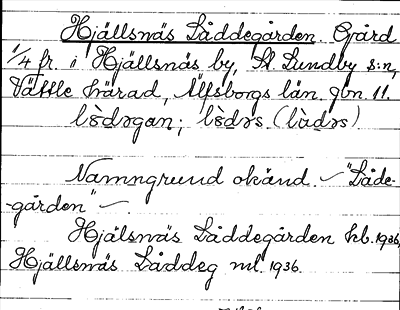 Hjällsnäs Låddegården. Gård
1/4 fr. i Hjällsnäs by, St. Lundby s:n,
Vättle härad, Älfsborgs län. gbn. 11.
lòdəgan; lòdəs. (làdəs)
Namngrund okänd. – "Låde-
-gården" –
Hjälsnäs Låddegården kb. 1936,
Hjällsnäs Låddeg ml. 1936.